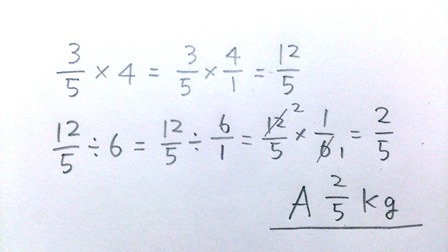 3/5 × 4 = 3/5 × 4/1 = 12/5
12/5 ÷ 6 = 12/5 ÷ 6/1 = 12/5 2 × 1/6 1 = 2/5
A 2/5 kg